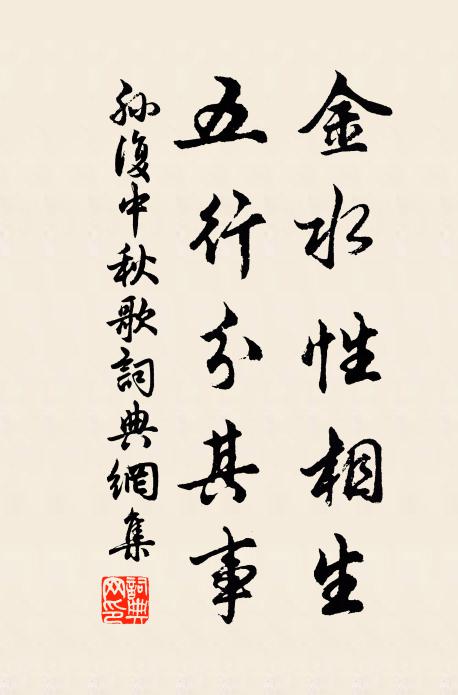 金水性相生
五行分其事
孙復中秋歌詞典網集
詞典网印